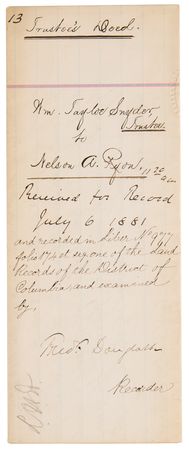 13
Trustee's Deed.
Wm. Taylor Snyder,
Trustee
to
Nelson A. Ryon
11 20 am
Received for Record
July 6 1881
and recorded in Liber No 977
folio 174 et seq one of the Land
Records of the District of
Columbia and examined
by,
Fredk Douglass
Recorder